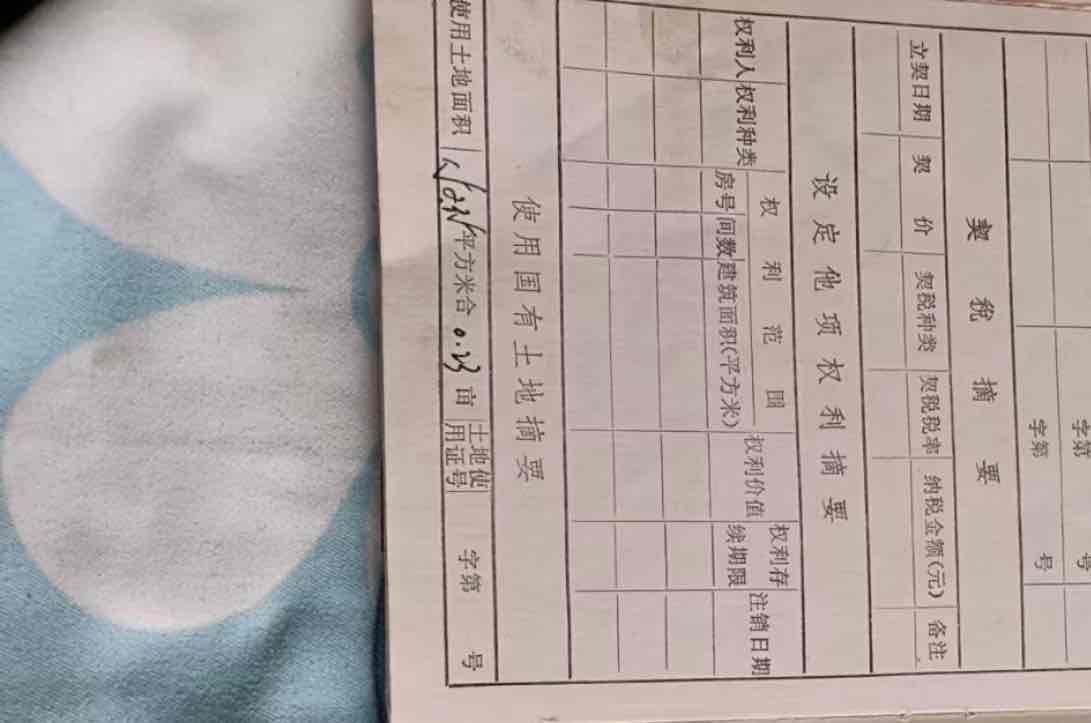 字第 号
字第 号
契税摘要
立契日期 契价 契税种类 契税税率 纳税金额(元) 备注
设定他项权利摘要
权利人 权利种类 权利范围 权利价值 权利存续期限 注销日期
房号 间数 建筑面积(平方米)
使用国有土地摘要
使用土地面积 平方米合 0.23 亩 土地使用证号 字第 号